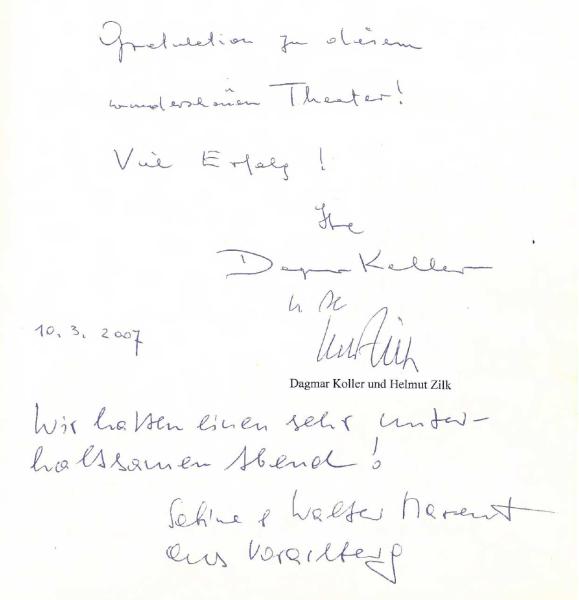 Gratulation zu diesem
wunderschönen Theater!
Viel Erfolg!
Ihre
Dagmar Koller
10.3.2007
Dagmar Koller und Helmut Zilk
Wir hatten einen sehr unter-
haltsamen Abend!
Sabine & Walter
aus Vorarlberg